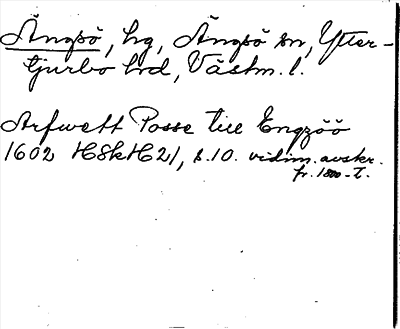 Ängsö, hg, Ängsö sn, Ytter-
tjurbo hd, Västm. l.
Arfwett Posse till Engzöö
1602 HSkH21, s. 10. vidim. avskr.
fr. 1800-t.